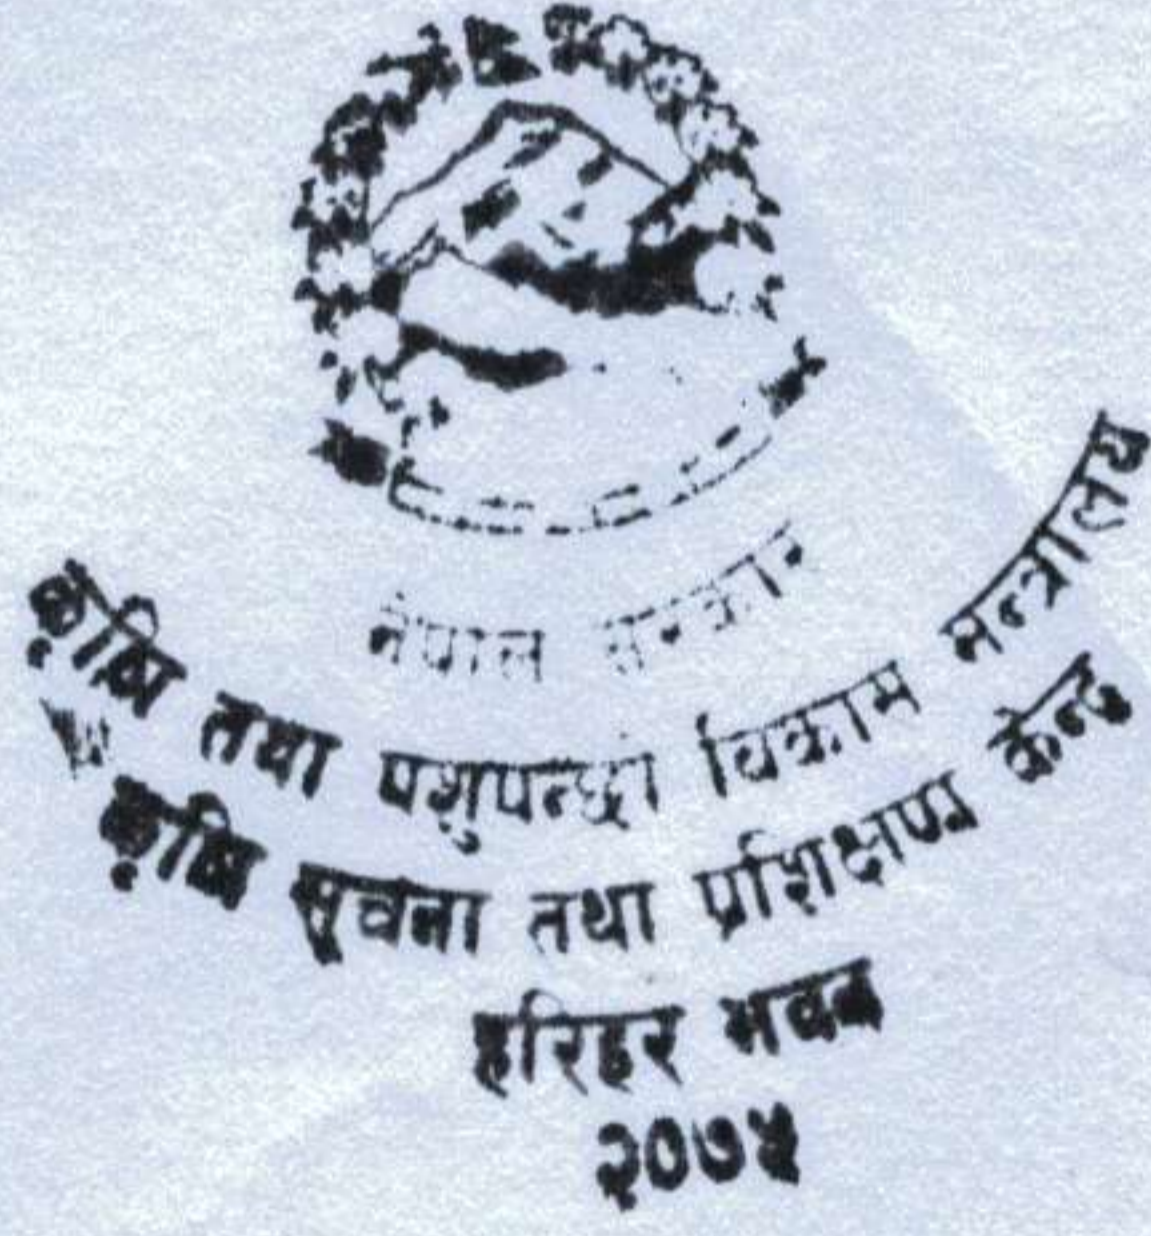 नेपाल सरकार
कृषि तथा पशुपन्छी विकास मन्त्रालय
कृषि सूचना तथा प्रशिक्षण केन्द्र
हरिहर भवन
२०७५